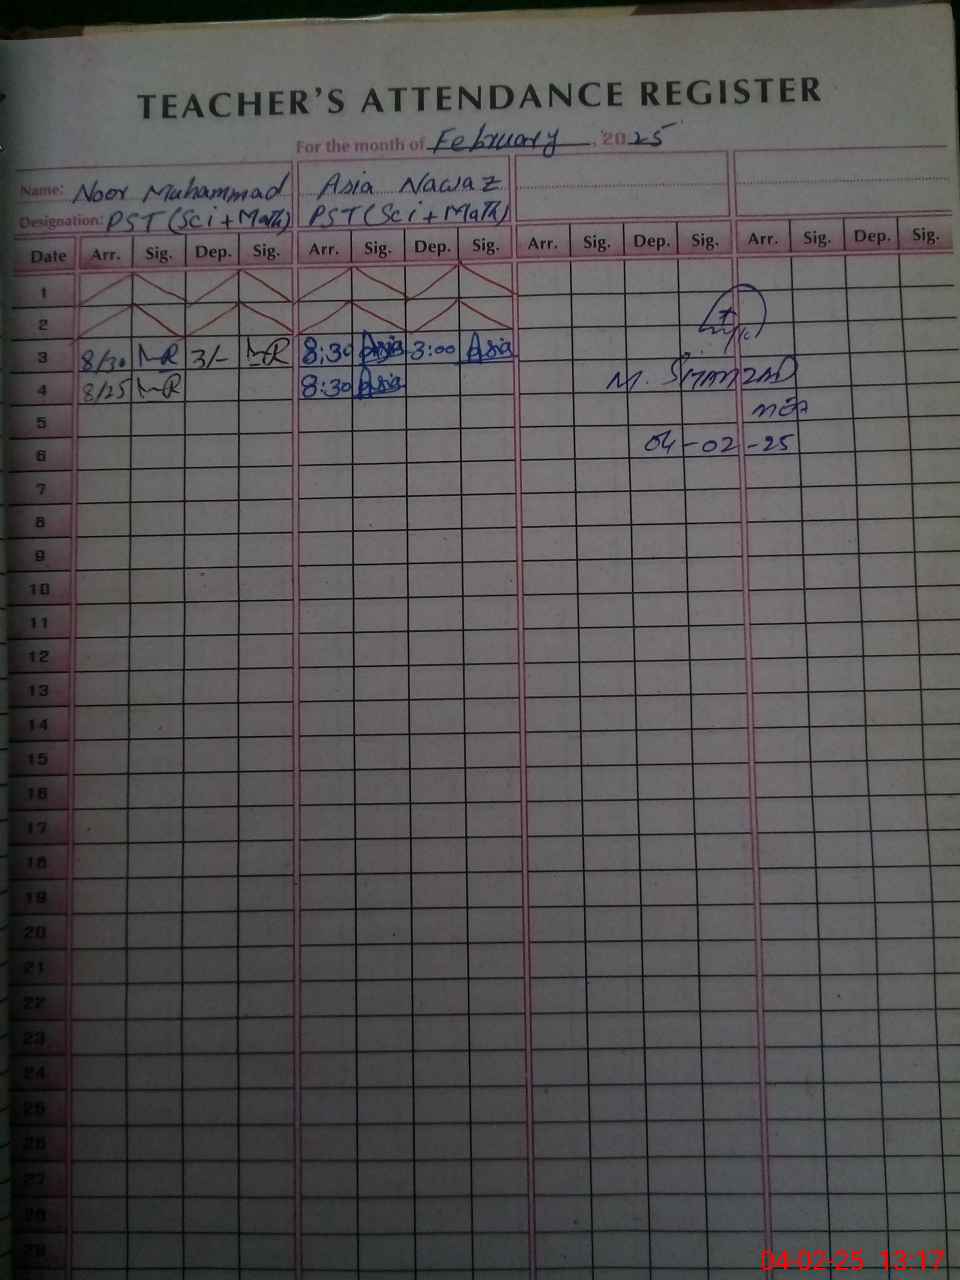 TEACHER'S ATTENDANCE REGISTER
For the month of February, 2025
Name: Noor Muhammad Asia Nawaz
Designation: PST (Sci + Math) PST (Sci + Math)
Date Arr. Sig. Dep. Sig. Arr. Sig. Dep. Sig. Arr. Sig. Dep. Sig. Arr. Sig. Dep. Sig.
1
2
3 8/30 3/- 8:30 Asia 3:00 Asia
4 8/25 8:30 Asia M. SHAMZAD
5 MEA
6 04-02-25
7
8
9
10
11
12
13
14
15
16
17
18
19
20
21
22
23
24
25
26
27
28
29
04-02-25 13:17